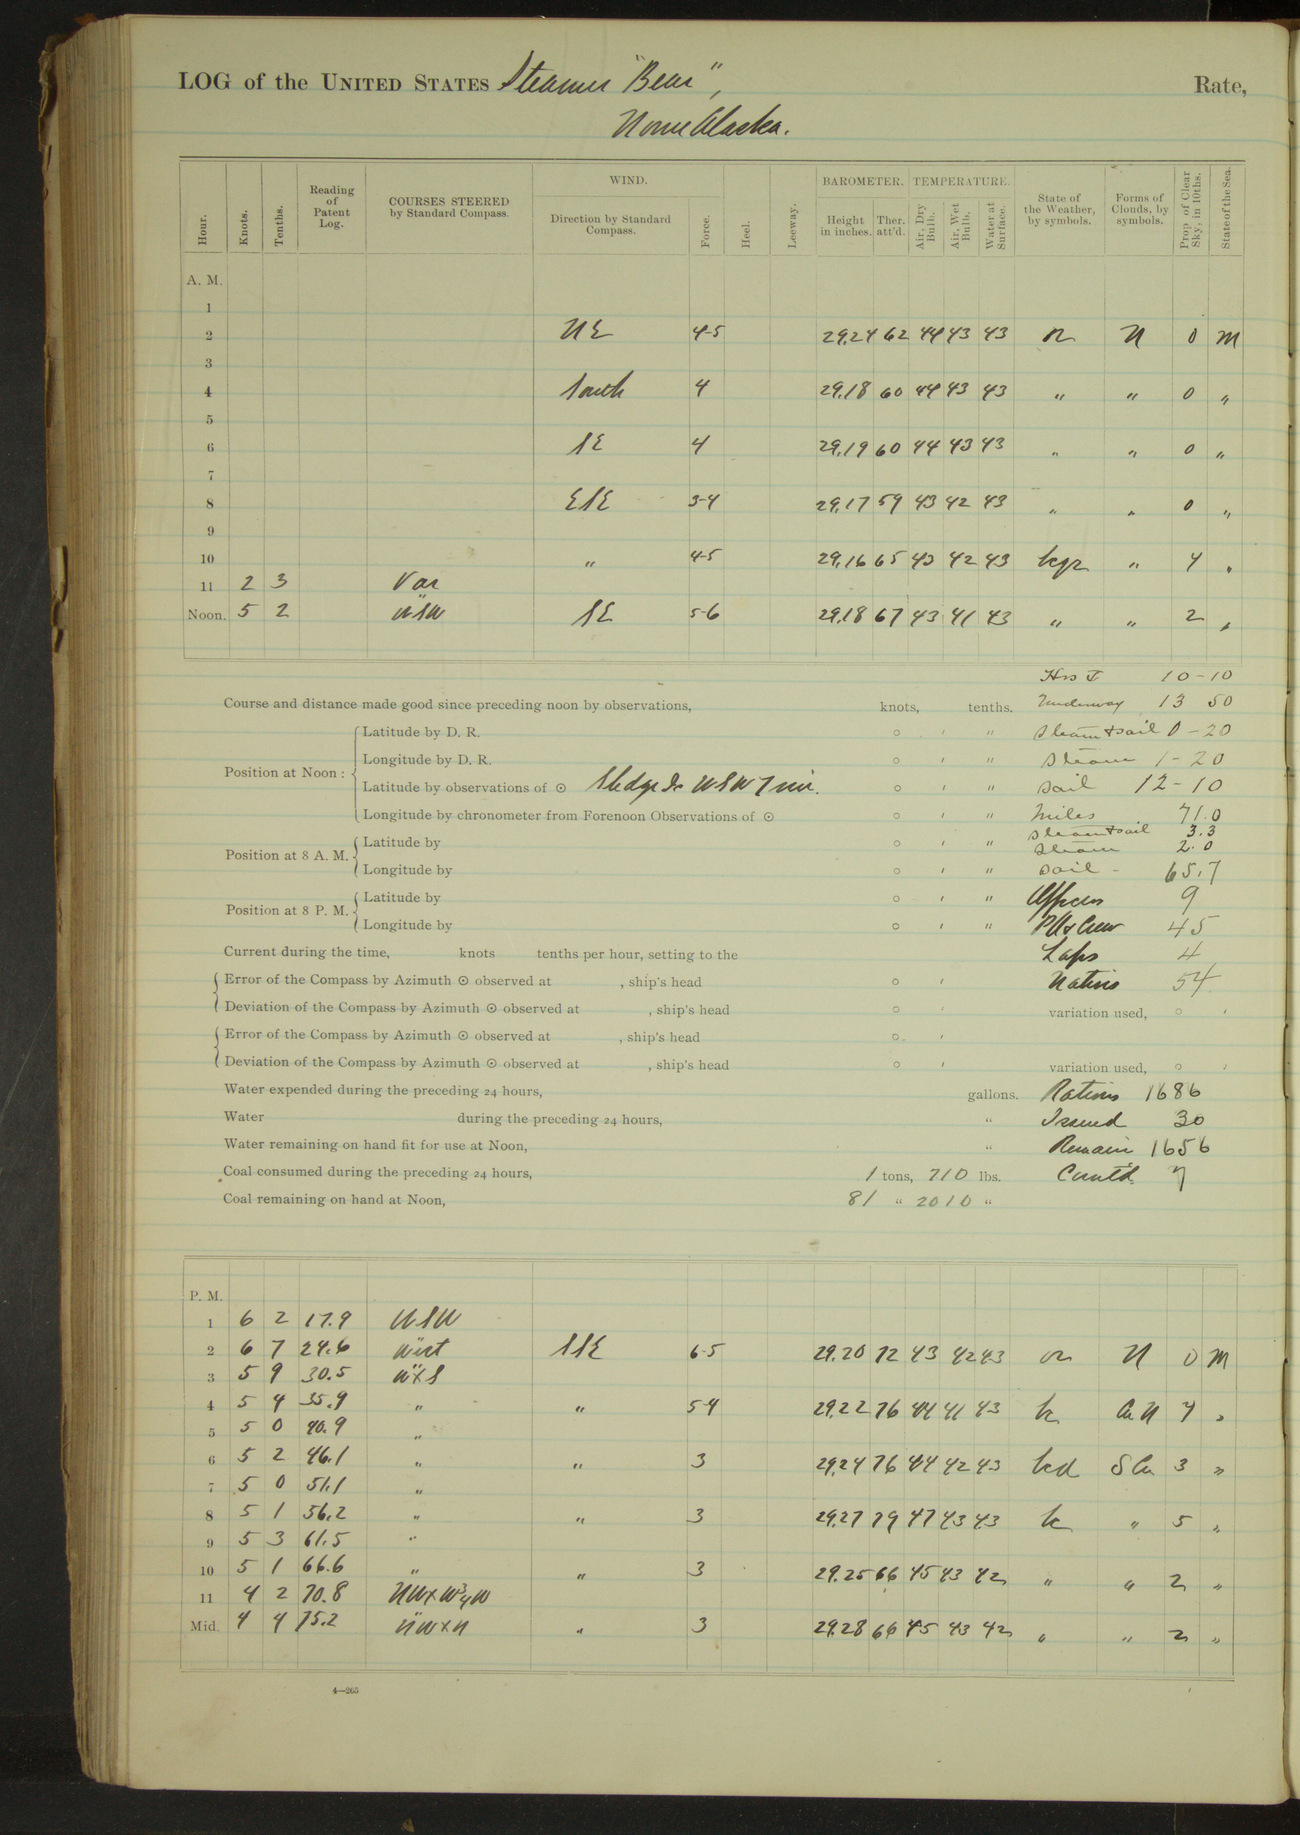 LOG of the UNITED STATES Steamer "Bear", Rate,
Nome Alaska.
Hour. Knots. Tenths. Reading of Patent Log. COURSES STEERED by Standard Compass. WIND. Direction by Standard Compass. Force. Heel. Leeway. BAROMETER. Height in inches. Ther. att'd. TEMPERATURE. Air, Dry Bulb. Air, Wet Bulb. Water at Surface. State of the Weather, by symbols. Forms of Clouds, by symbols. Prop. of Clear Sky, in 10ths. State of the Sea.
A. M.
1
2 NE 4-5 29.24 62 44 43 43 or N 0 M
3
4 South 4 29.18 60 44 43 43 " " 0 "
5
6 SE 4 29.19 60 44 43 43 " " 0 "
7
8 ESE 3-4 29.17 59 43 42 43 " " 0 "
9
10 " 4-5 29.16 65 43 42 43 bcqr " 4 "
11 2 3 Var
Noon. 5 2 WSW SE 5-6 29.18 67 43 41 43 " " 2 "
10-10
Course and distance made good since preceding noon by observations, knots, tenths. Underway 13 50
Position at Noon: Latitude by D. R. ° ' " Steam & sail 0-20
Longitude by D. R. ° ' " Steam 1-20
Latitude by observations of ☉ Sledge Is WSW 7 mi. ° ' " Sail 12-10
Longitude by chronometer from Forenoon Observations of ☉ ° ' " Miles 71.0
Steam & sail 3.3
Position at 8 A. M. Latitude by ° ' " Steam 2.0
Longitude by ° ' " Sail - 65.7
Position at 8 P. M. Latitude by ° ' " Officers 9
Longitude by ° ' " Crew 45
Current during the time, knots tenths per hour, setting to the Laps 4
Error of the Compass by Azimuth ☉ observed at , ship's head ° ' Natives 54
Deviation of the Compass by Azimuth ☉ observed at , ship's head ° ' variation used, ° '
Error of the Compass by Azimuth ☉ observed at , ship's head ° '
Deviation of the Compass by Azimuth ☉ observed at , ship's head ° ' variation used, ° '
Water expended during the preceding 24 hours, gallons. Rations 1686
Water during the preceding 24 hours, " Issued 30
Water remaining on hand fit for use at Noon, " Remain 1656
Coal consumed during the preceding 24 hours, 1 tons, 710 lbs. 7
Coal remaining on hand at Noon, 81 " 2010 "
P. M.
1 6 2 17.9 WSW
2 6 7 24.6 West SSE 6-5 29.20 72 43 42 43 or N 0 M
3 5 9 30.5 WxS
4 5 4 35.9 " " 5-4 29.22 76 44 41 43 bc Cu N 4 "
5 5 0 40.9 "
6 5 2 46.1 " " 3 29.24 76 44 42 43 bcd S Cu 3 "
7 5 0 51.1 "
8 5 1 56.2 " " 3 29.27 79 47 43 43 bc " 5 "
9 5 3 61.5 "
10 5 1 66.6 " " 3 29.25 66 45 43 42 " " 2 "
11 4 2 70.8 NWxW¾W
Mid. 4 4 75.2 NWxN " 3 29.28 66 45 43 42 " " 2 "
4—265